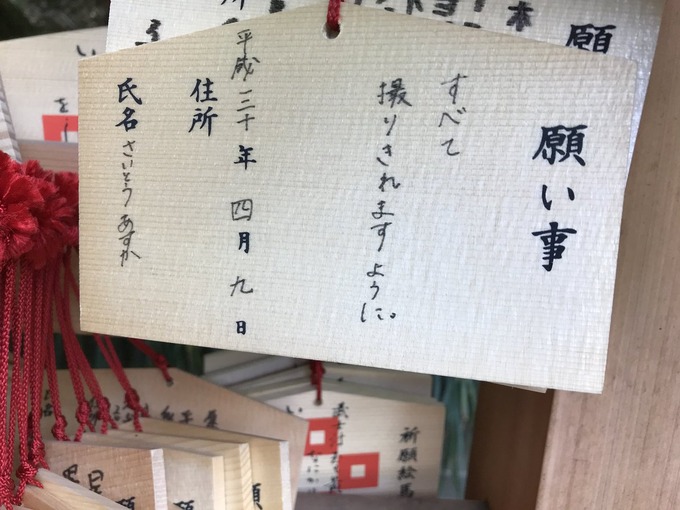 願い事
すべて
撮りきれますように。
平成三十年四月九日
住所
氏名 さいとう あすか
願
本
祈願絵馬
願
願